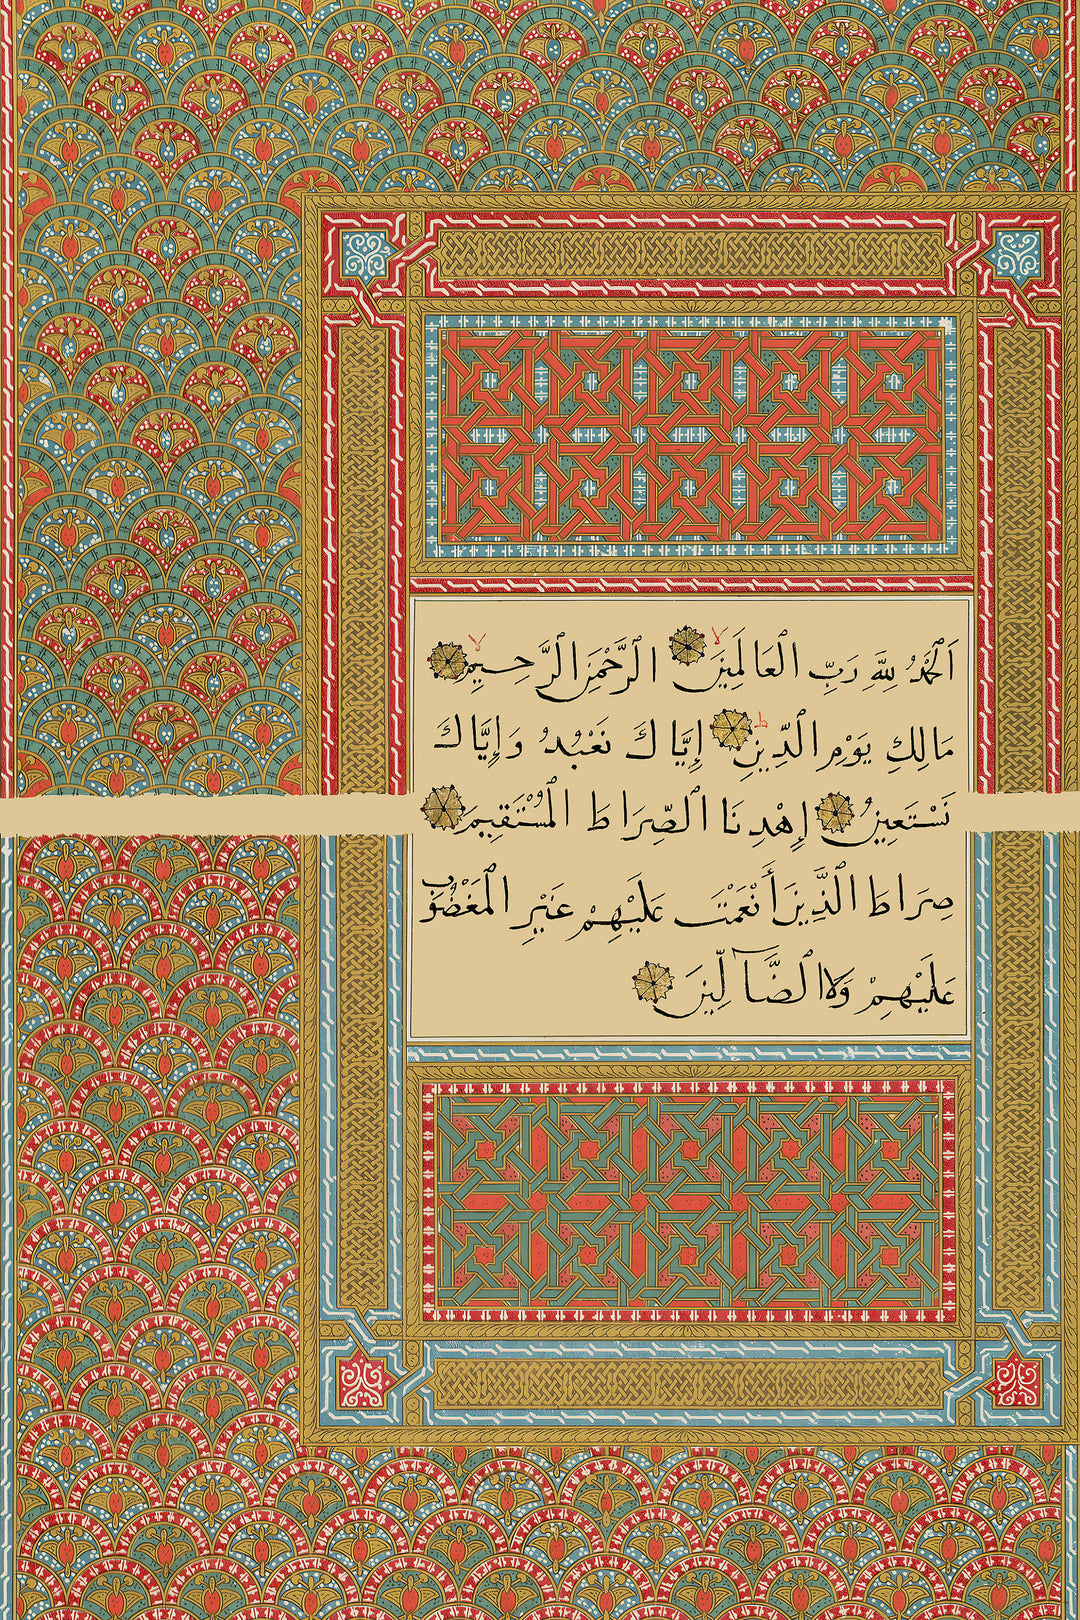 اَلْحَمْدُ لِلَّهِ رَبِّ الْعَالَمِينَ لا الرَّحْمَنِ الرَّحِيمِ لا
مَالِكِ يَوْمِ الدِّينِ ط إِيَّاكَ نَعْبُدُ وَإِيَّاكَ
نَسْتَعِينُ إِهْدِنَا الصِّرَاطَ الْمُسْتَقِيمَ
صِرَاطَ الَّذِينَ أَنْعَمْتَ عَلَيْهِمْ غَيْرِ الْمَغْضُوبِ
عَلَيْهِمْ وَلَا الضَّآلِّينَ